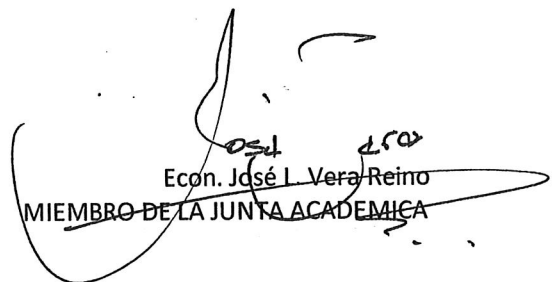 Econ. José L. Vera Reino
MIEMBRO DE LA JUNTA ACADEMICA